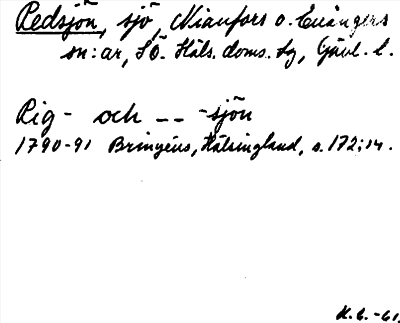 Redsjön, sjö, Nianfors o. Enångers
sn:ar, SÖ. Häls. doms. sg, Gävl. l.
Rig- och -- -sjön
1790-91 Bringéus, Hälsingland, s. 172; 14.
K.C. -61.